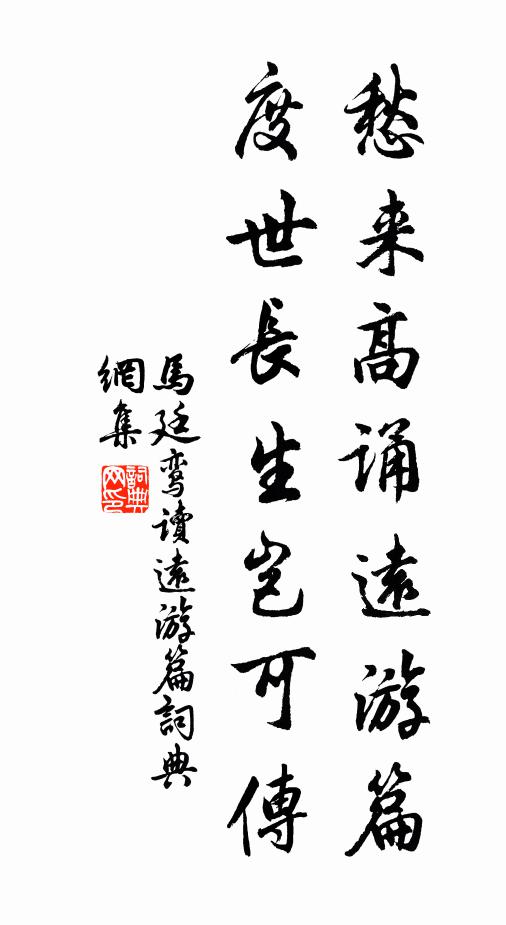 愁来高誦遠游篇
度世長生豈可傳
馬廷鸾讀遠游篇詞典
網集
詞典
网印